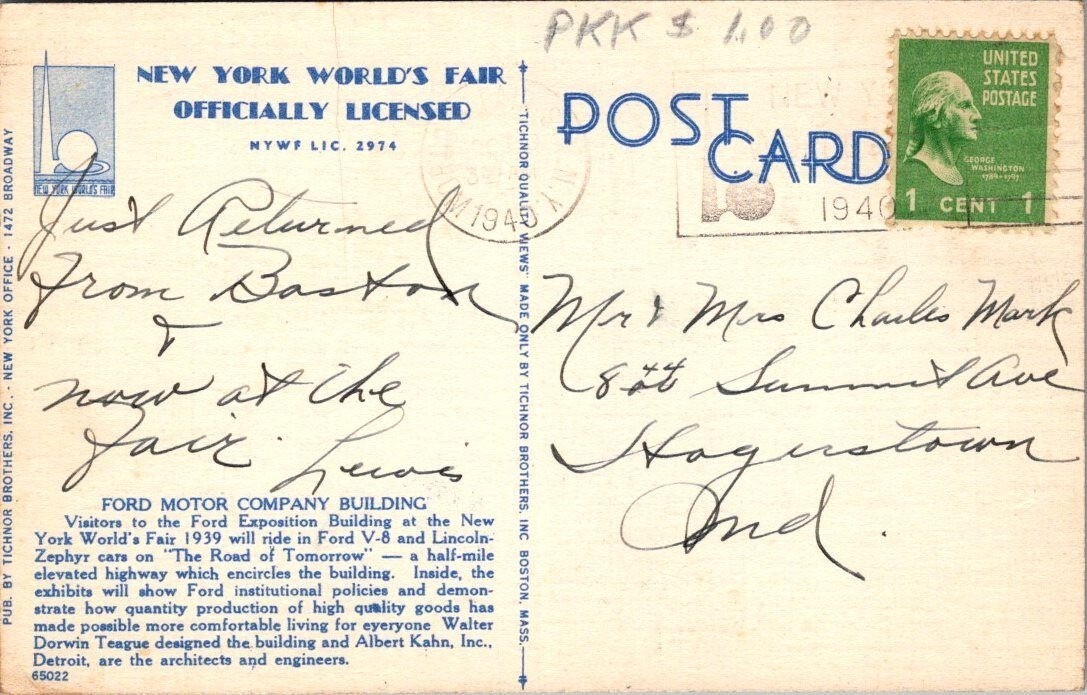 PKK $ 1.00
NEW YORK WORLD'S FAIR
OFFICIALLY LICENSED
NYWF LIC. 2974
NEW YORK WORLD'S FAIR
POST CARD
UNITED
STATES
POSTAGE
GEORGE
WASHINGTON
1789-1797
1 CENT 1
N.Y.
1940
NEW
1940
Just Returned
from Boston
&
now at the
Fair. Lewis
Mr & Mrs Charles Mark
Summit Ave
Hagerstown
Md.
FORD MOTOR COMPANY BUILDING
Visitors to the Ford Exposition Building at the New
York World's Fair 1939 will ride in Ford V-8 and Lincoln-
Zephyr cars on "The Road of Tomorrow" — a half-mile
elevated highway which encircles the building. Inside, the
exhibits will show Ford institutional policies and demon-
strate how quantity production of high quality goods has
made possible more comfortable living for eyeryone Walter
Dorwin Teague designed the building and Albert Kahn, Inc.,
Detroit, are the architects and engineers.
65022
PUB. BY TICHNOR BROTHERS, INC. - NEW YORK OFFICE - 1472 BROADWAY
"TICHNOR QUALITY VIEWS" MADE ONLY BY TICHNOR BROTHERS, INC BOSTON, MASS.